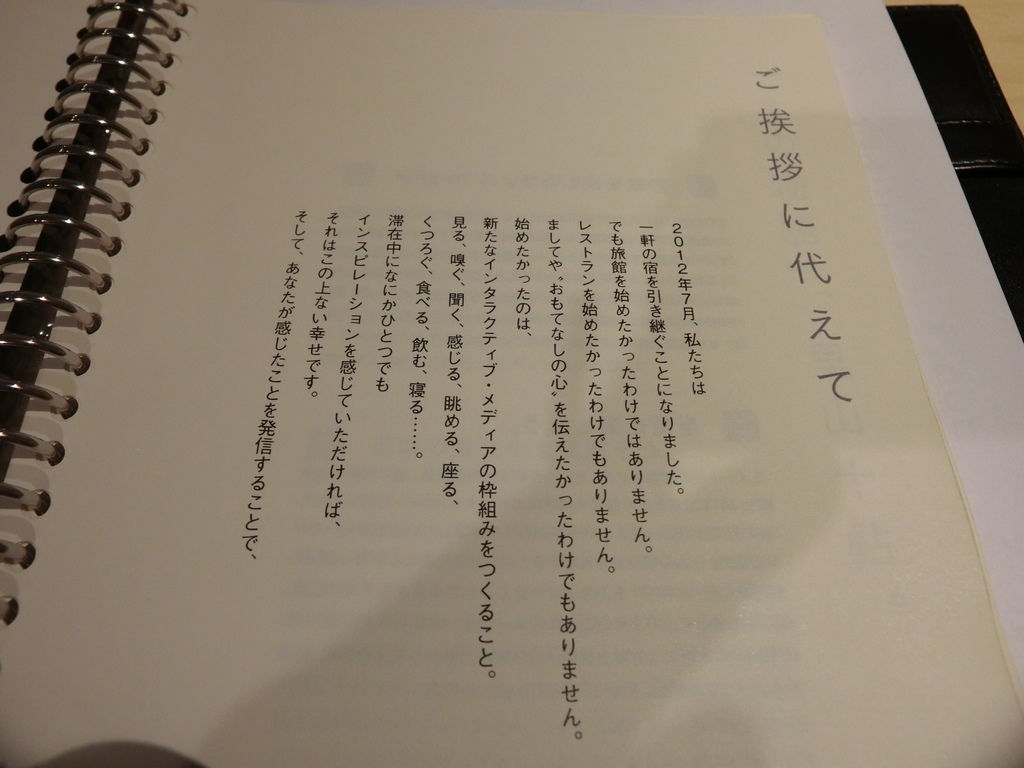 ご挨拶に代えて
2012年7月、私たちは
一軒の宿を引き継ぐことになりました。
でも旅館を始めたかったわけではありません。
レストランを始めたかったわけでもありません。
ましてや〝おもてなしの心〟を伝えたかったわけでもありません。
始めたかったのは、
新たなインタラクティブ・メディアの枠組みをつくること。
見る、嗅ぐ、聞く、感じる、眺める、座る、
くつろぐ、食べる、飲む、寝る……。
滞在中になにかひとつでも
インスピレーションを感じていただければ、
それはこの上ない幸せです。
そして、あなたが感じたことを発信することで、